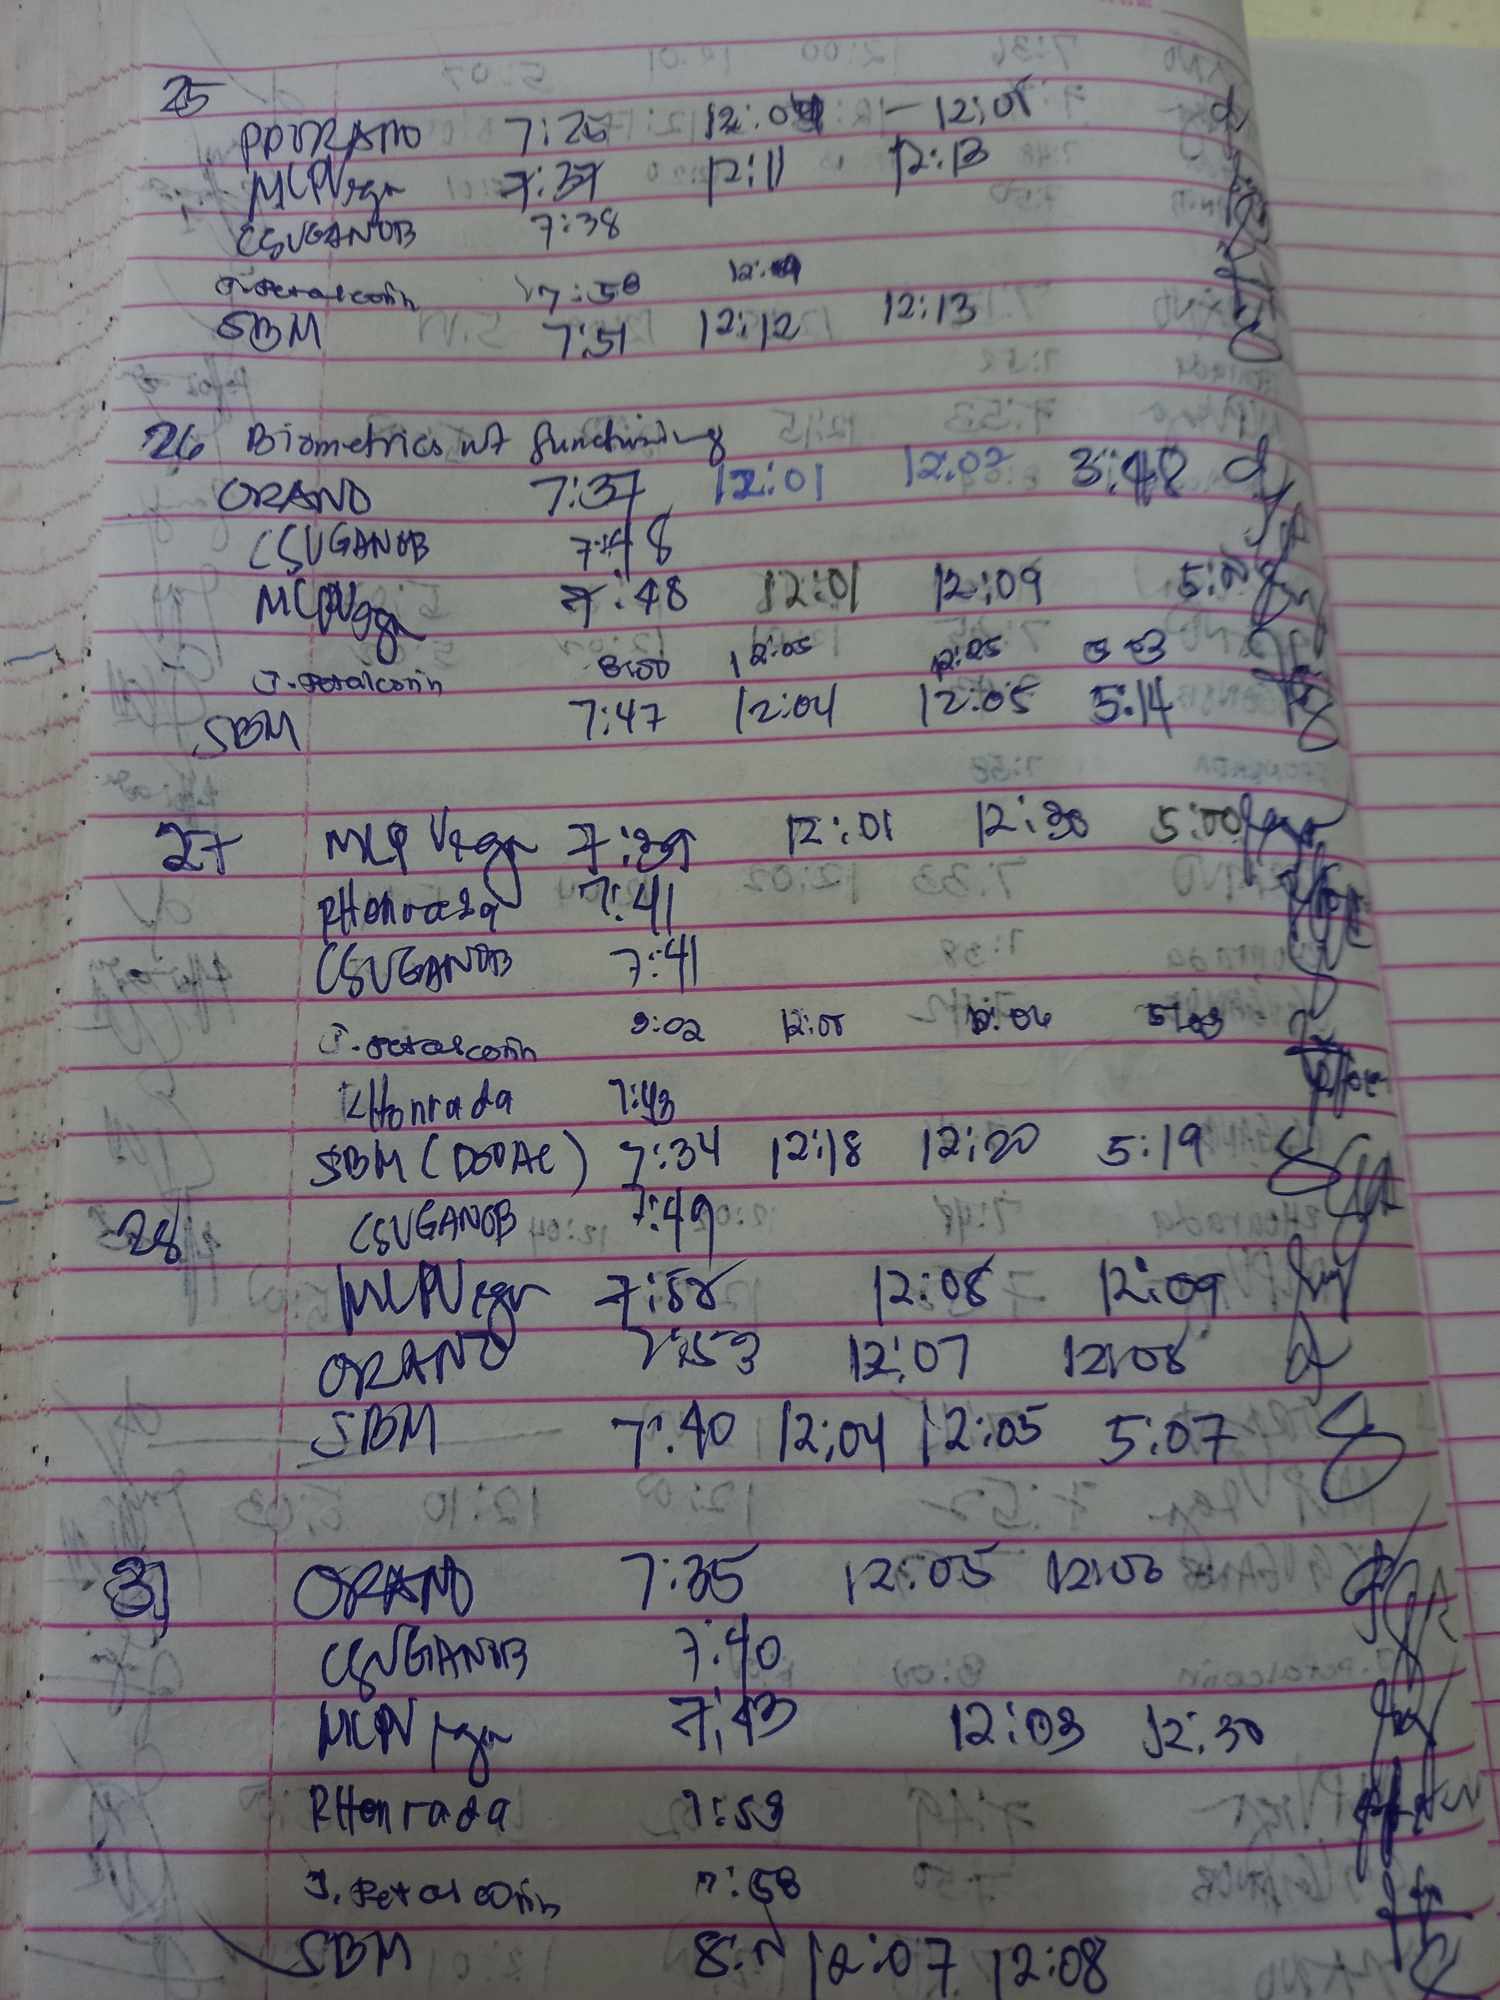 25
PDORANO 7:25 12:04 - 12:05
MCPVega 7:37 12:11 12:13
CSUGANOB 7:38
J. Petalcorin 7:50 12:09
SBM 7:51 12:12 12:13
26 Biometrics not functioning
ORANO 7:37 12:01 12:02 3:48
CSUGANOB 7:48
MCPVega 7:48 12:01 12:09
J. Petalcorin 8:00 12:05 12:25 5:03
SBM 7:47 12:04 12:05 5:14
27 MCPVega 7:39 12:01 12:30 5:00
RHonrada 7:41
CSUGANOB 7:41
J. Petalcorin 12:05 12:06 5:03
KHonrada 7:43
SBM (DODAC) 7:34 12:18 12:20 5:19
28 CSUGANOB 7:49
MCPVega 7:58 12:08 12:09
ORANO 7:53 12:07 12:08
SBM 7:40 12:04 12:05 5:07
31 ORANO 7:35 12:05 12:06
CSUGANOB 7:40
MCPVega 7:43 12:03 12:30
RHonrada 7:53
J. Petalcorin 7:58
SBM 12:07 12:08